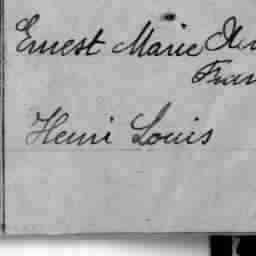 Ernest Marie
Henri Louis